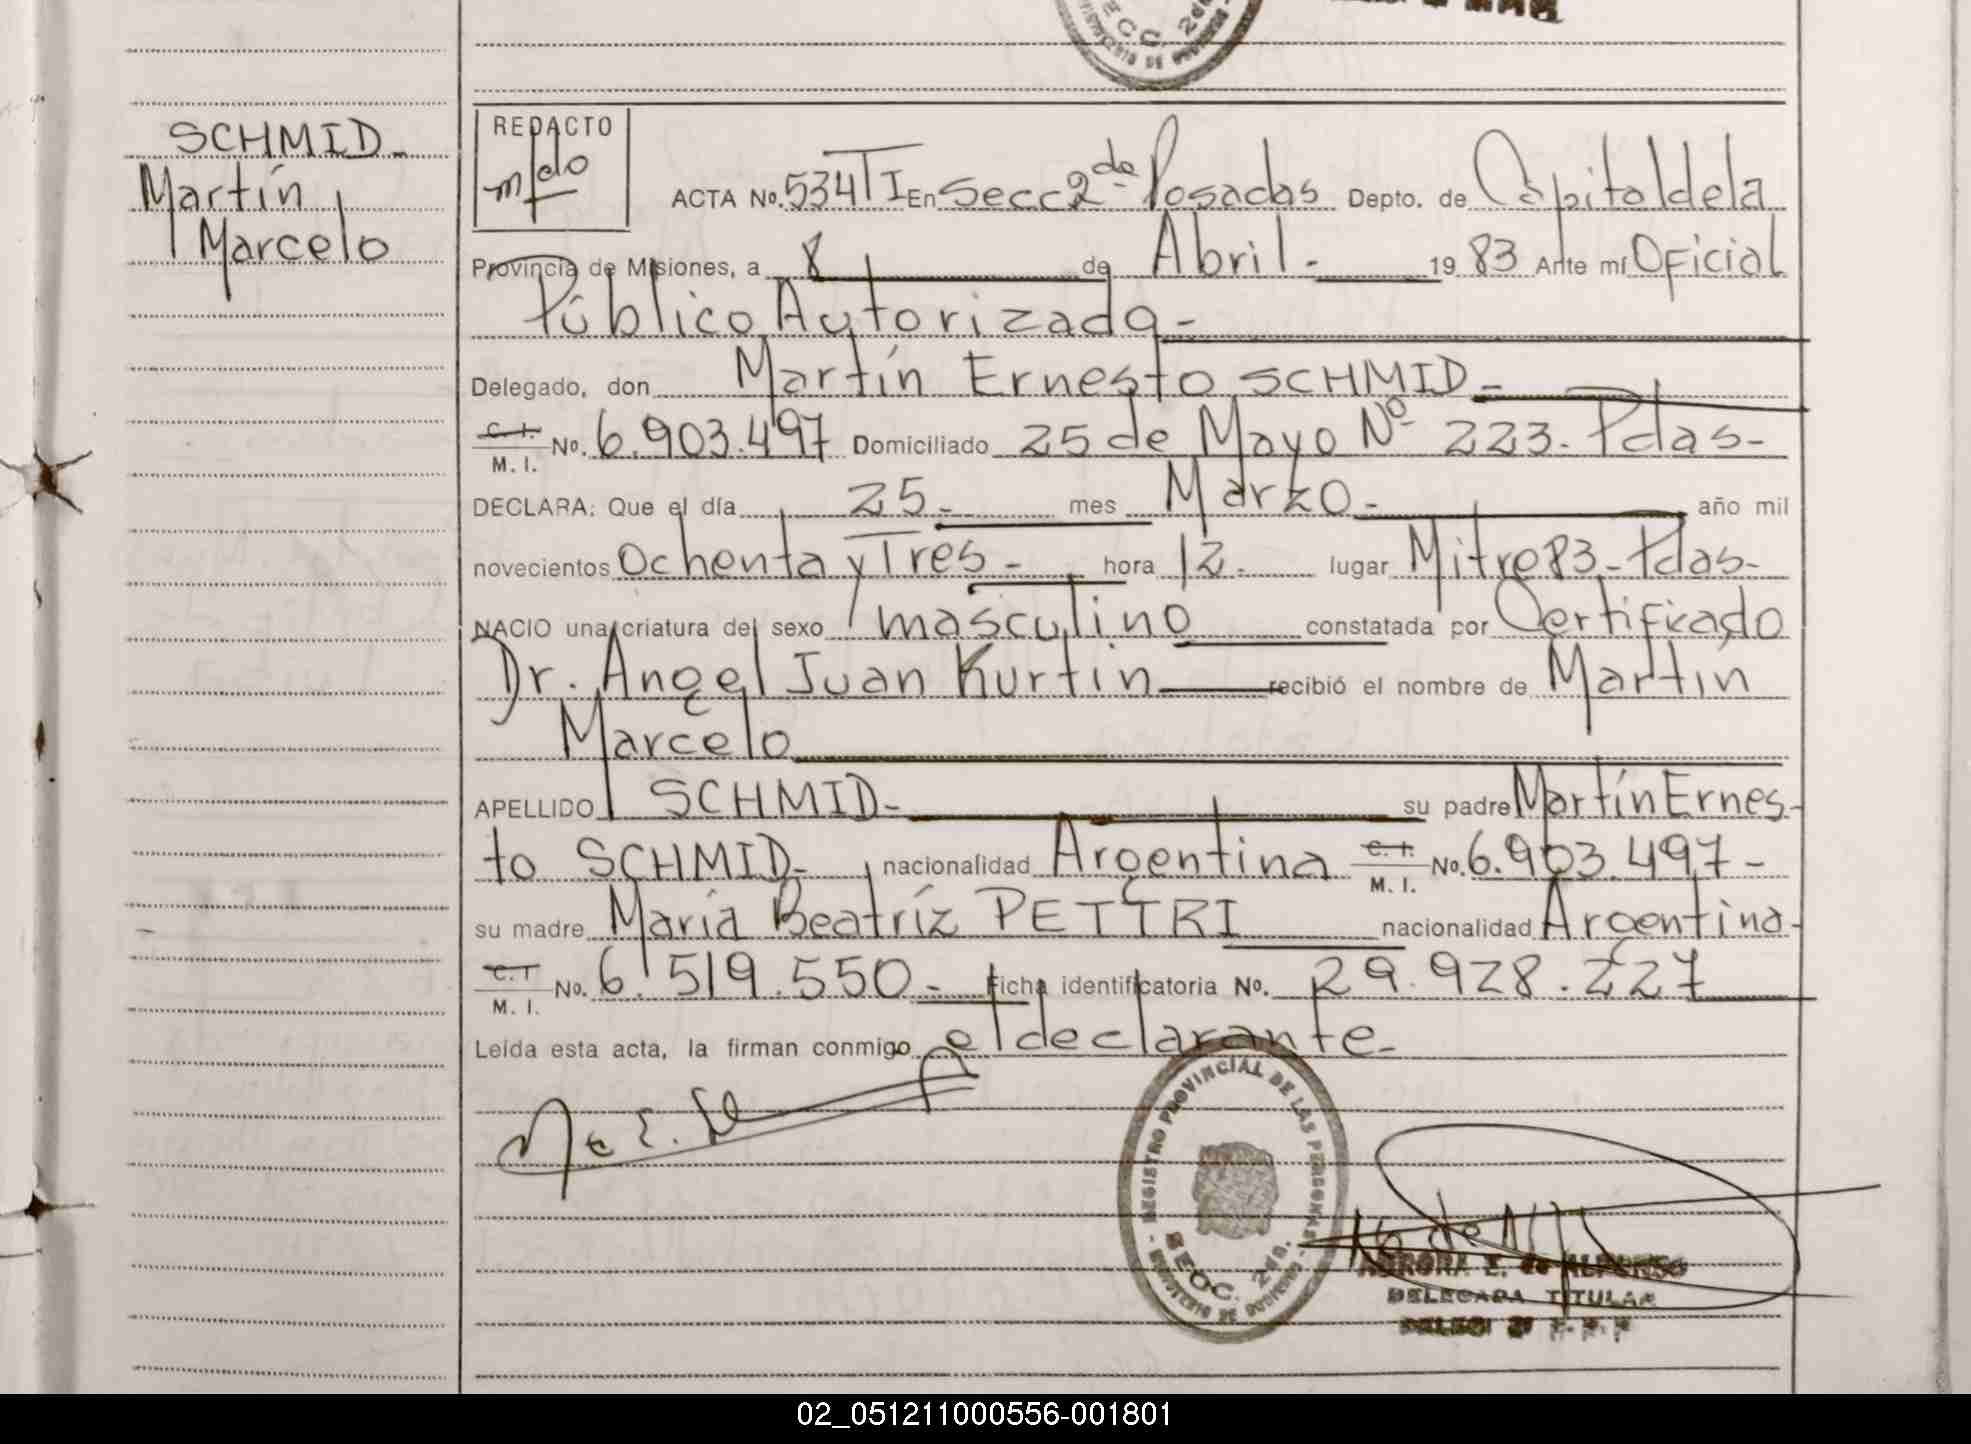 SECC. 2da.
SCHMID-
Martín
Marcelo
REDACTO
ACTA No. 534 TI En Secc 2da Posadas Depto. de Capital de la
Provincia de Misiones, a 8 de Abril - 19 83 Ante mí Oficial
Público Autorizada -
Delegado, don Martín Ernesto SCHMID -
C. I. M. I. No. 6.903.497 Domiciliado 25 de Mayo Nº 223 - Pdas -
DECLARA: Que el día 25 - mes Marzo - año mil
novecientos Ochenta y Tres - hora 12 - lugar Mitre 83 - Pdas -
NACIO una criatura del sexo masculino constatada por Certificado
Dr. Angel Juan Kurtin recibió el nombre de Martin
Marcelo
APELLIDO SCHMID - su padre Martín Ernes-
to SCHMID - nacionalidad Argentina C. I. M. I. No. 6.903.497 -
su madre María Beatríz PETTRI nacionalidad Argentina -
C. I. M. I. No. 6.519.550 - Ficha identificatoria No. 29.928.227
Leída esta acta, la firman conmigo el declarante -
REGISTRO PROVINCIAL DE LAS PERSONAS
SECC. 2da.
MINISTERIO DE GOBIERNO
AURORA E. de ALFONSO
DELEGADA TITULAR
02_051211000556-001801